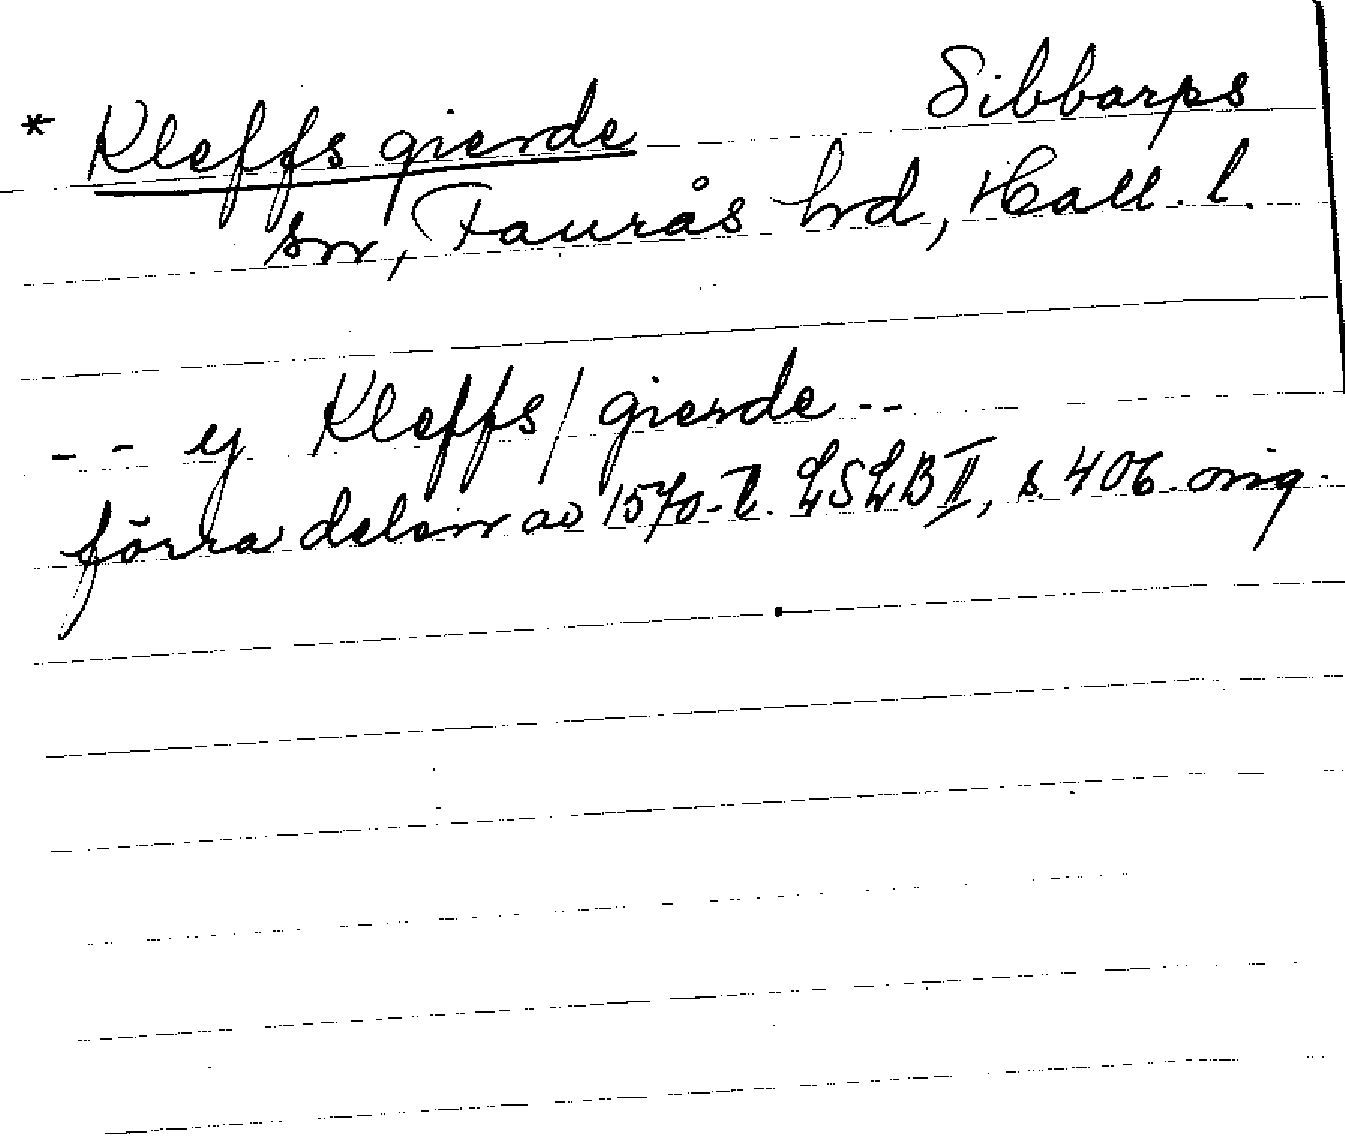 * Kleffs gierde Sibbarps
sn, Faurås hrd, Hall. l.
- - ej Kleffs/gierde - -
förra delen av 1570-t. LSLB II, s. 406 orig.